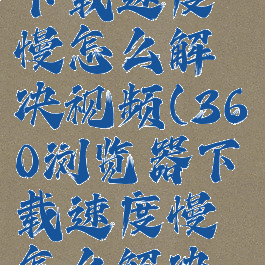 下载速度
慢怎么解
决视频(36
0浏览器下
载速度慢
怎么解决